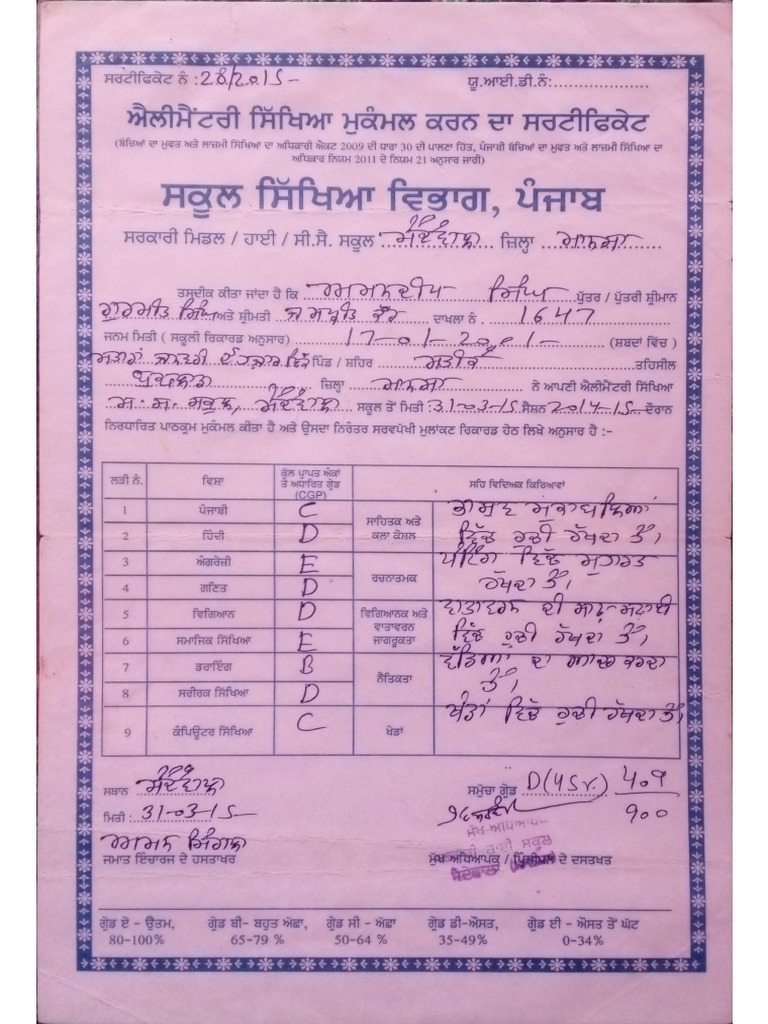 ਸਰਟੀਫਿਕੇਟ ਨੰ :28/2015- ਯੂ.ਆਈ.ਡੀ.ਨੰ:....................
ਐਲੀਮੈਂਟਰੀ ਸਿੱਖਿਆ ਮੁਕੰਮਲ ਕਰਨ ਦਾ ਸਰਟੀਫਿਕੇਟ
(ਬੱਚਿਆਂ ਦਾ ਮੁਫਤ ਅਤੇ ਲਾਜ਼ਮੀ ਸਿੱਖਿਆ ਦਾ ਅਧਿਕਾਰੀ ਐਕਟ 2009 ਦੀ ਧਾਰਾ 30 ਦੀ ਪਾਲਣਾ ਹਿੱਤ, ਪੰਜਾਬੀ ਬੱਚਿਆਂ ਦਾ ਮੁਫਤ ਅਤੇ ਲਾਜ਼ਮੀ ਸਿੱਖਿਆ ਦਾ
ਅਧਿਕਾਰ ਨਿਯਮ 2011 ਦੇ ਨਿਯਮ 21 ਅਨੁਸਾਰ ਜਾਰੀ)
ਸਕੂਲ ਸਿੱਖਿਆ ਵਿਭਾਗ, ਪੰਜਾਬ
ਸਰਕਾਰੀ ਮਿਡਲ / ਹਾਈ / ਸੀ.ਸੈ. ਸਕੂਲ ਜ਼ਿਲ੍ਹਾ ਮਾਨਸਾ
ਤਸਦੀਕ ਕੀਤਾ ਜਾਂਦਾ ਹੈ ਕਿ ਅਮਨਦੀਪ ਸਿੰਘ ਪੁੱਤਰ / ਪੁੱਤਰੀ ਸ਼੍ਰੀਮਾਨ
ਗੁਰਮੀਤ ਸਿੰਘ ਅਤੇ ਸ਼੍ਰੀਮਤੀ ਜਸਪ੍ਰੀਤ ਕੌਰ ਦਾਖਲਾ ਨੰ . 1647
ਜਨਮ ਮਿਤੀ ( ਸਕੂਲੀ ਰਿਕਾਰਡ ਅਨੁਸਾਰ) 17-01-2001- (ਸ਼ਬਦਾਂ ਵਿੱਚ )
ਸਤਾਰਾਂ ਜਨਵਰੀ ਦੋ ਹਜ਼ਾਰ ਇੱਕ ਪਿੰਡ / ਸ਼ਹਿਰ ਤਹਿਸੀਲ
ਜ਼ਿਲ੍ਹਾ ਮਾਨਸਾ ਨੇ ਆਪਣੀ ਐਲੀਮੈਂਟਰੀ ਸਿੱਖਿਆ
ਸ. ਸ. ਸਕੂਲ, ਸਕੂਲ ਤੋਂ ਮਿਤੀ :31-03-15 ਸੈਸ਼ਨ 2014-15 ਦੌਰਾਨ
ਨਿਰਧਾਰਿਤ ਪਾਠਕ੍ਰਮ ਮੁਕੰਮਲ ਕੀਤਾ ਹੈ ਅਤੇ ਉਸਦਾ ਨਿਰੰਤਰ ਸਰਵਪੱਖੀ ਮੁਲਾਂਕਣ ਰਿਕਾਰਡ ਹੇਠ ਲਿਖੇ ਅਨੁਸਾਰ ਹੈ :-
ਲੜੀ ਨੰ. ਵਿਸ਼ਾ ਕੁੱਲ ਪ੍ਰਾਪਤ ਅੰਕਾਂ ਤੇ ਅਧਾਰਿਤ ਗ੍ਰੇਡ (CGP) ਸਹਿ ਵਿਦਿਅਕ ਕਿਰਿਆਵਾਂ
1 ਪੰਜਾਬੀ C ਸਾਹਿਤਕ ਅਤੇ ਕਲਾ ਕੌਸ਼ਲ ਭਾਸ਼ਣ ਮੁਕਾਬਲਿਆਂ
2 ਹਿੰਦੀ D ਵਿੱਚ ਰੁਚੀ ਰੱਖਦਾ ਹੈ।
3 ਅੰਗਰੇਜ਼ੀ E ਰਚਨਾਤਮਕ ਪੇਂਟਿੰਗ ਵਿੱਚ ਮੁਹਾਰਤ
4 ਗਣਿਤ D ਰੱਖਦਾ ਹੈ।
5 ਵਿਗਿਆਨ D ਵਿਗਿਆਨਕ ਅਤੇ ਵਾਤਾਵਰਨ ਜਾਗਰੂਕਤਾ ਵਾਤਾਵਰਨ ਦੀ ਸਾਫ਼-ਸਫ਼ਾਈ
6 ਸਮਾਜਿਕ ਸਿੱਖਿਆ E ਵਿੱਚ ਰੁਚੀ ਰੱਖਦਾ ਹੈ।
7 ਡਰਾਇੰਗ B ਨੈਤਿਕਤਾ ਵੱਡਿਆਂ ਦਾ ਆਦਰ ਕਰਦਾ
8 ਸਰੀਰਕ ਸਿੱਖਿਆ D ਹੈ।
9 ਕੰਪਿਊਟਰ ਸਿੱਖਿਆ C ਖੇਡਾਂ ਖੇਡਾਂ ਵਿੱਚ ਰੁਚੀ ਰੱਖਦਾ ਹੈ।
ਸਥਾਨ ਸਮੁੱਚਾ ਗ੍ਰੇਡ D(45%) 409
ਮਿਤੀ : 31-03-15 900
ਜਮਾਤ ਇੰਚਾਰਜ ਦੇ ਹਸਤਾਖਰ ਮੁੱਖ ਅਧਿਆਪਕ / ਪ੍ਰਿੰਸੀਪਲ ਦੇ ਦਸਤਖਤ
ਮੁੱਖ-ਅਧਿਆਪਕ
ਹਾਈ ਸਕੂਲ
ਗ੍ਰੇਡ ਏ - ਉਤਮ, ਗ੍ਰੇਡ ਬੀ- ਬਹੁਤ ਅੱਛਾ, ਗ੍ਰੇਡ ਸੀ - ਅੱਛਾ ਗ੍ਰੇਡ ਡੀ-ਔਸਤ, ਗ੍ਰੇਡ ਈ - ਔਸਤ ਤੋਂ ਘੱਟ
80-100% 65-79 % 50-64 % 35-49% 0-34%